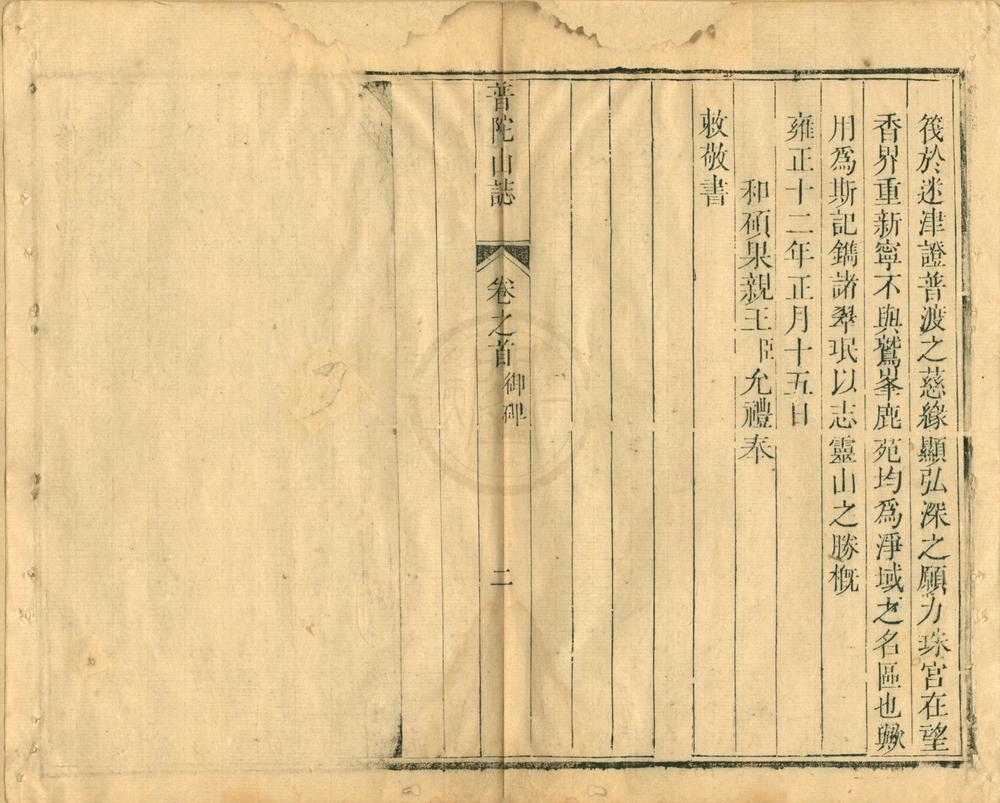 筏於迷津證普渡之慈緣顯弘深之願力珠宮在望
香界重新寧不與鷲峯鹿苑均為淨域之名區也歟
用為斯記鐫諸翠珉以志靈山之勝概
雍正十二年正月十五日
和碩果親王臣允禮奉
敕敬書
普陀山誌
卷之首
御碑
二